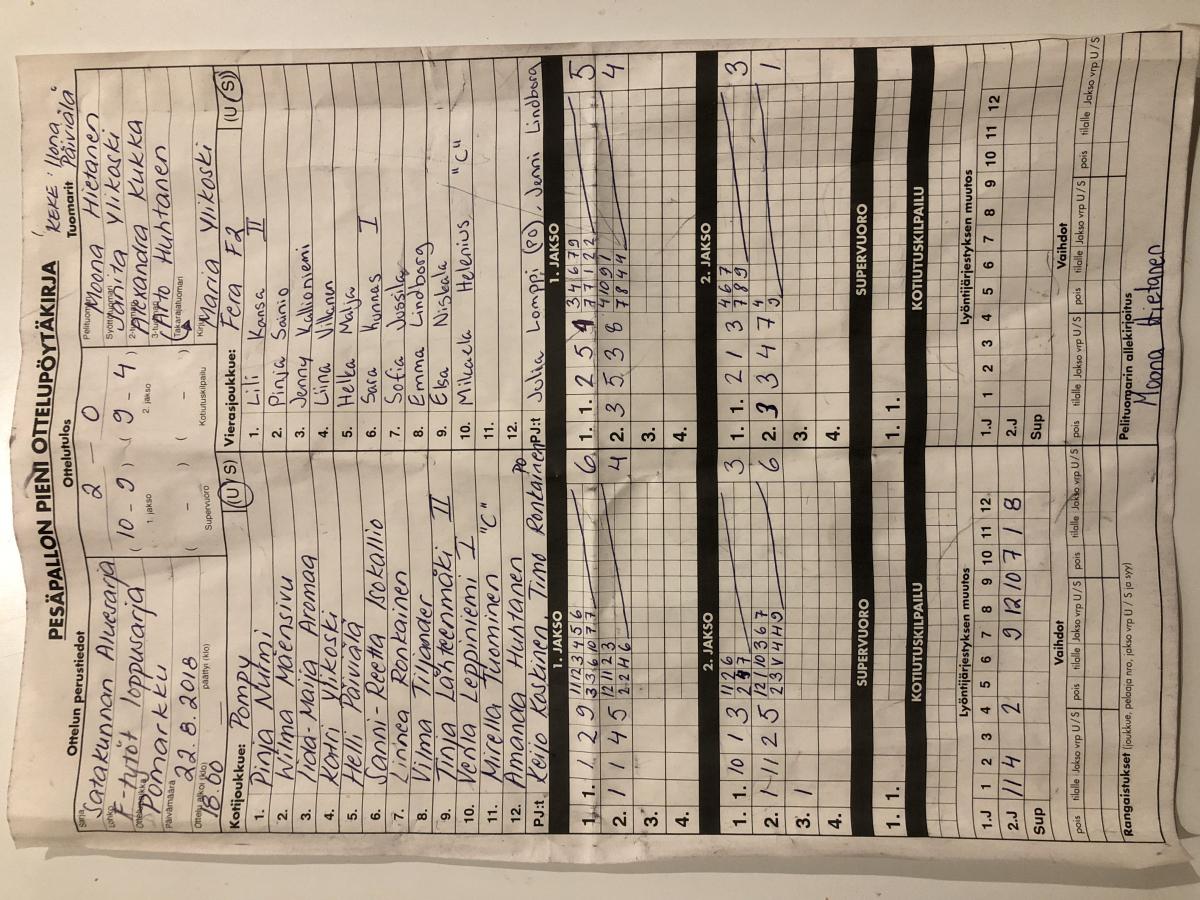 PESÄPALLON PIENI OTTELUPÖYTÄKIRJA
KEKE: Ilona Päiviälä
Ottelun perustiedot
Ottelutulos
Tuomarit
Sarja
Satakunnan Aluesarja
Lohko
F-tytöt loppusarja
Ottelupaikka
Pomarkku
Päivämäärä
22.8.2018
Ottelu alkoi (klo)
18.00
päättyi (klo)
2 – 0
( 10 – 9 ) ( 9 – 4 )
1. jakso
2. jakso
( – ) ( – )
Supervuoro
Kotiutuskilpailu
Pelituomari
Moona Hietanen
Syöttötuomari
Janita Ylikoski
2-tuomari
Alexandra Kukka
3-tuomari
Arto Huhtanen
(Takarajatuomari
Kirjuri
Maria Ylikoski
Kotijoukkue: Pompy (U/S)
1. Pinja Nurmi
2. Wilma Mäensivu
3. Iida-Maija Aromaa
4. Katri Ylikoski
5. Helli Päiviälä
6. Sanni-Reetta Isokallio
7. Linnea Ronkainen
8. Vilma Tiliander
9. Tinja Lähteenmäki II
10. Venla Leppiniemi I
11. Mirella Tuominen "C"
12. Amanda Huhtanen
PJ:t Keijo Koskinen, Timo Ronkainen PO
Vierasjoukkue: Fera F2 (U/S)
1. Lili Kansa II
2. Pinja Sainio
3. Jenny Kallioniemi
4. Liina Villanen
5. Helka Maija
6. Sara Kunnas I
7. Sofia Jussila
8. Emma Lindborg
9. Elsa Niskala
10. Mikaela Helenius "C"
11.
12.
PJ:t Julia Lomppi (PO), Jenni Lindborg
1. JAKSO
1. 1. 1 2 9 11 2 3 4 5 6 6
3 3 6 10 7 7
2. 1 4 5 12 11 2 3 4
2 2 4 6
3.
4.
1. JAKSO
1. 1. 2 5 9 3 4 6 7 9 5
7 7 1 2 2
2. 3 5 3 8 4 10 9 1 4
7 8 4 4
3.
4.
2. JAKSO
1. 1. 10 1 3 11 2 6 3
2. 1 11 2 5 12 1 10 3 6 7 6
2 3 V 4 4 9
3. 1
4.
2. JAKSO
1. 1. 2 1 3 4 6 7 3
7 8 9
2. 3 3 4 7 4 1
9
3.
4.
SUPERVUORO
1. 1.
SUPERVUORO
1. 1.
KOTIUTUSKILPAILU
KOTIUTUSKILPAILU
Lyöntijärjestyksen muutos
1 2 3 4 5 6 7 8 9 10 11 12
1.J
2.J 11 4 2 9 12 10 7 1 8
Sup
Lyöntijärjestyksen muutos
1.J 1 2 3 4 5 6 7 8 9 10 11 12
2.J
Sup
Vaihdot
pois tilalle Jakso vrp U/S pois tilalle Jakso vrp U/S pois tilalle Jakso vrp U/S
Vaihdot
pois tilalle Jakso vrp U/S pois tilalle Jakso vrp U/S pois tilalle Jakso vrp U/S
Rangaistukset (joukkue, pelaaja nro, jakso vrp U / S ja syy)
Pelituomarin allekirjoitus
Moona Hietanen